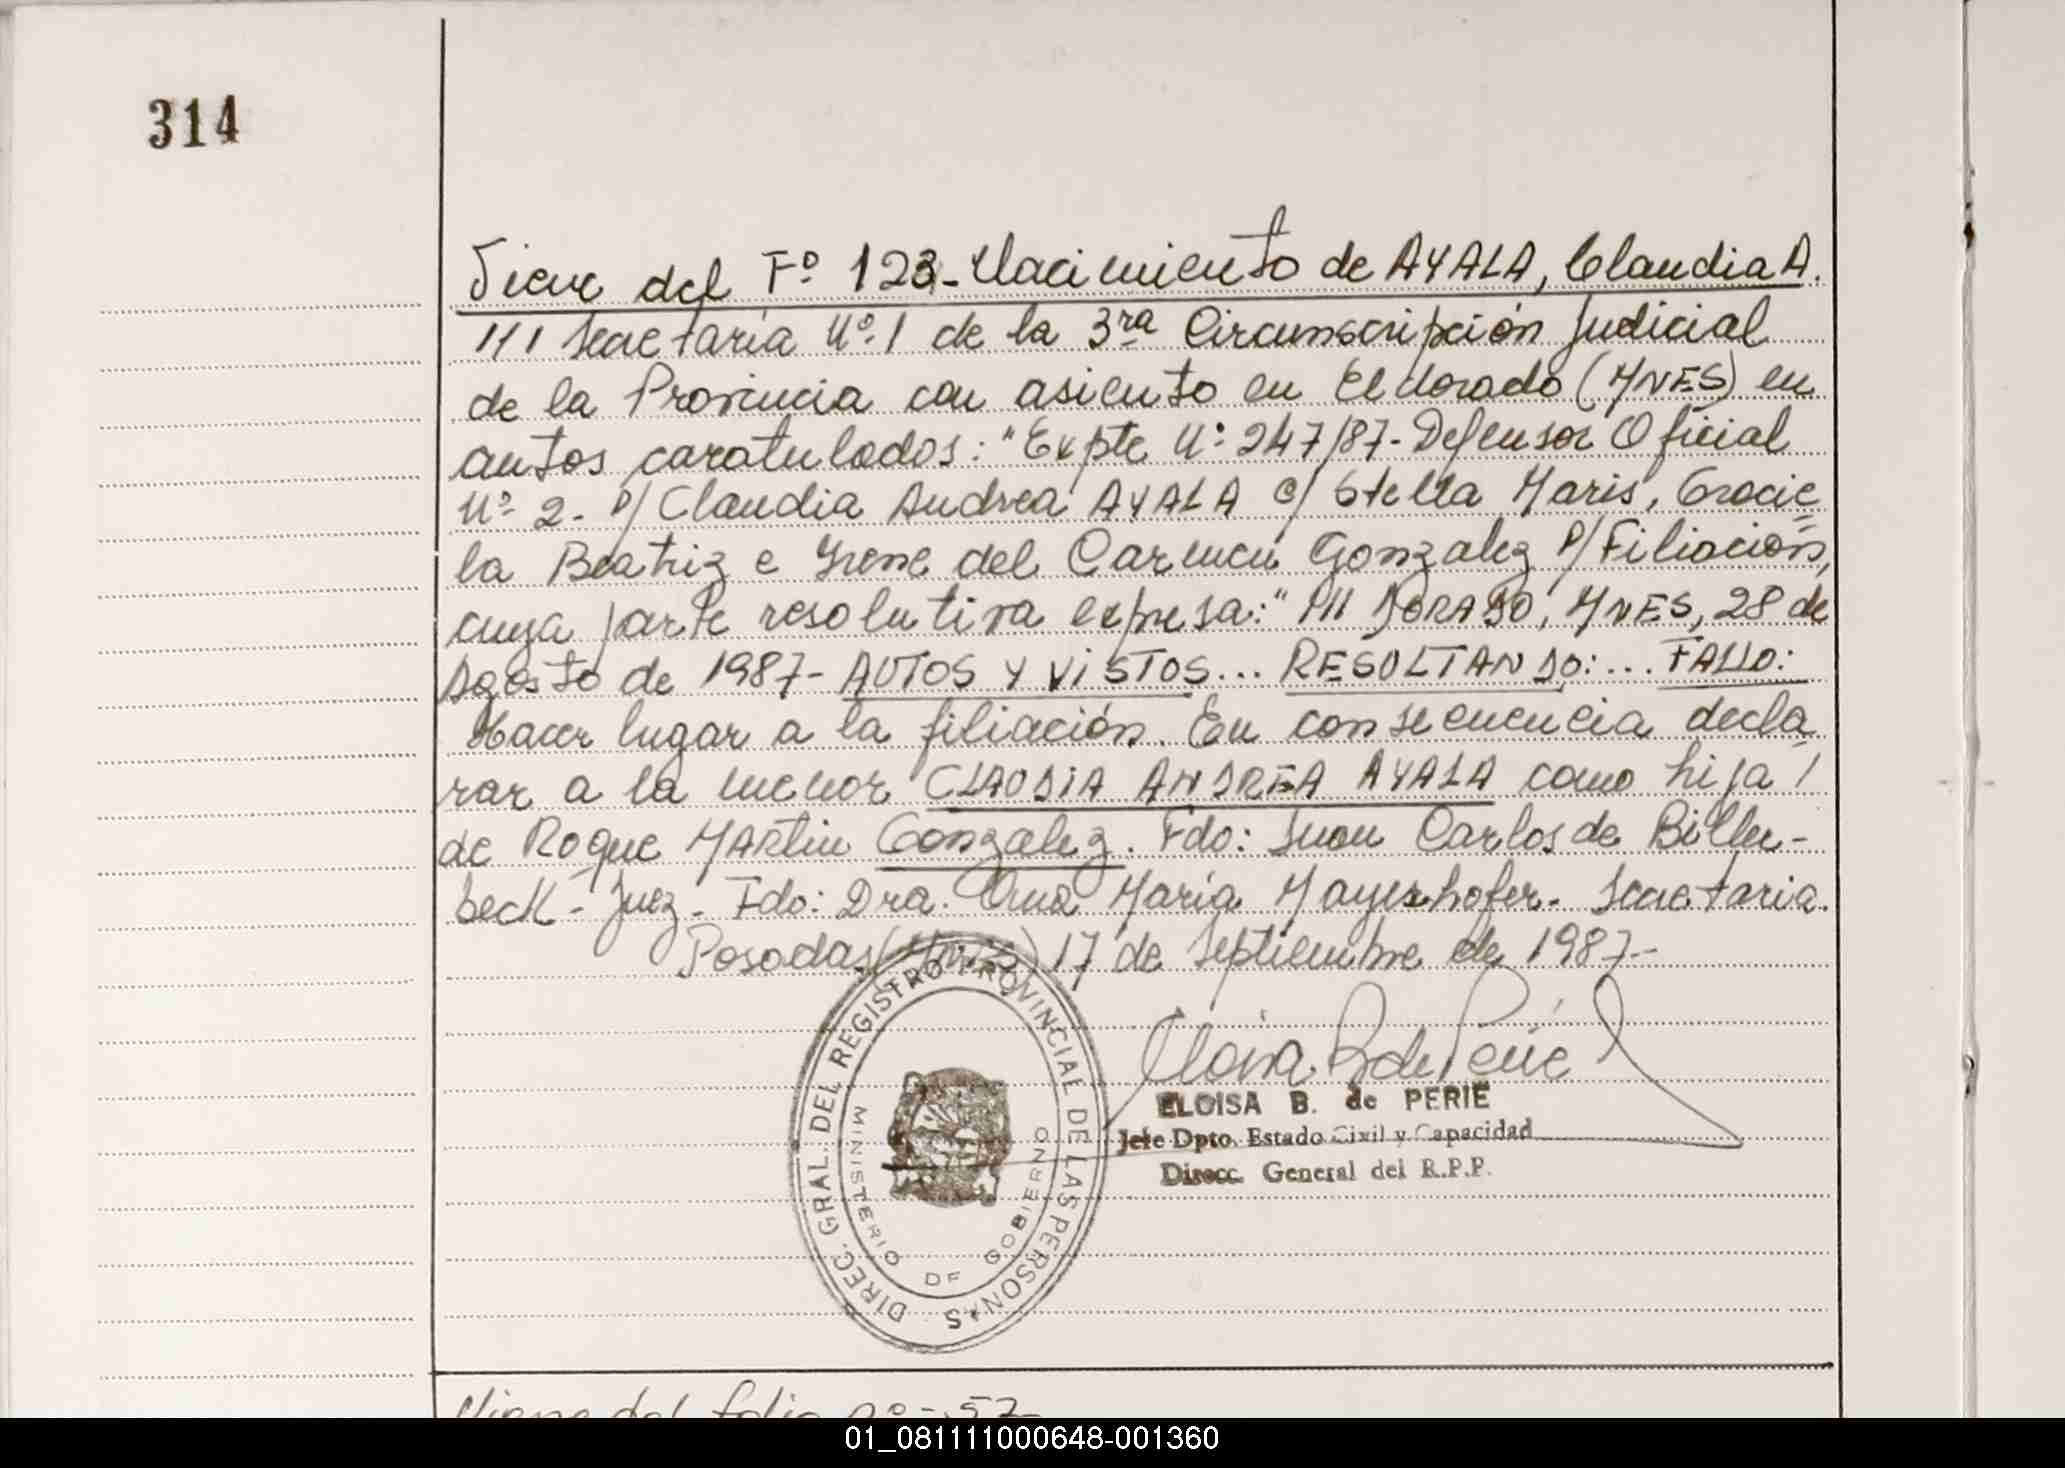 314
Viene del Fº 123- Nacimiento de AYALA, Claudia A.
/// Secretaría Nº 1 de la 3ra Circunscripción Judicial
de la Provincia con asiento en Eldorado (MNES) en
autos caratulados: "Expte Nº 247/87- Defensor Oficial
Nº 2- P/ Claudia Andrea AYALA C/ Stella Maris, Gracie
la Beatriz e Irene del Carmen Gonzalez P/ Filiación,
cuya parte resolutiva expresa: " /// DORADO, MNES, 28 de
Agosto de 1987- AUTOS Y VISTOS... RESULTANDO:... FALLO:
Hacer lugar a la filiación. En consecuencia decla
rar a la menor CLAUDIA ANDREA AYALA como hija /
de Roque Martin Gonzalez. Fdo: Juan Carlos de Billen-
beck - Juez - Fdo: Dra. Ana María Mayerhofer- Secretaria.
Posadas (Mnes) 17 de Septiembre de 1987-
DIREC. GRAL. DEL REGISTRO PROVINCIAL DE LAS PERSONAS
MINISTERIO DE GOBIERNO
Eloisa B de Perié
ELOISA B. de PERIE
Jefe Dpto. Estado Civil y Capacidad
Direcc. General del R.P.P.
Viene del folio nº 57-
01_081111000648-001360